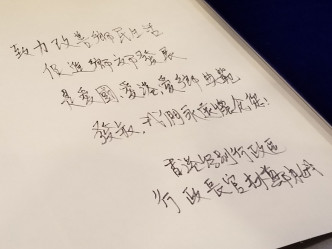 致力改善鄉民生活
促進鄉郊發展
是愛國愛港愛鄉典範
發叔，我們永遠懷念您！
香港特別行政區
行政長官林鄭月娥